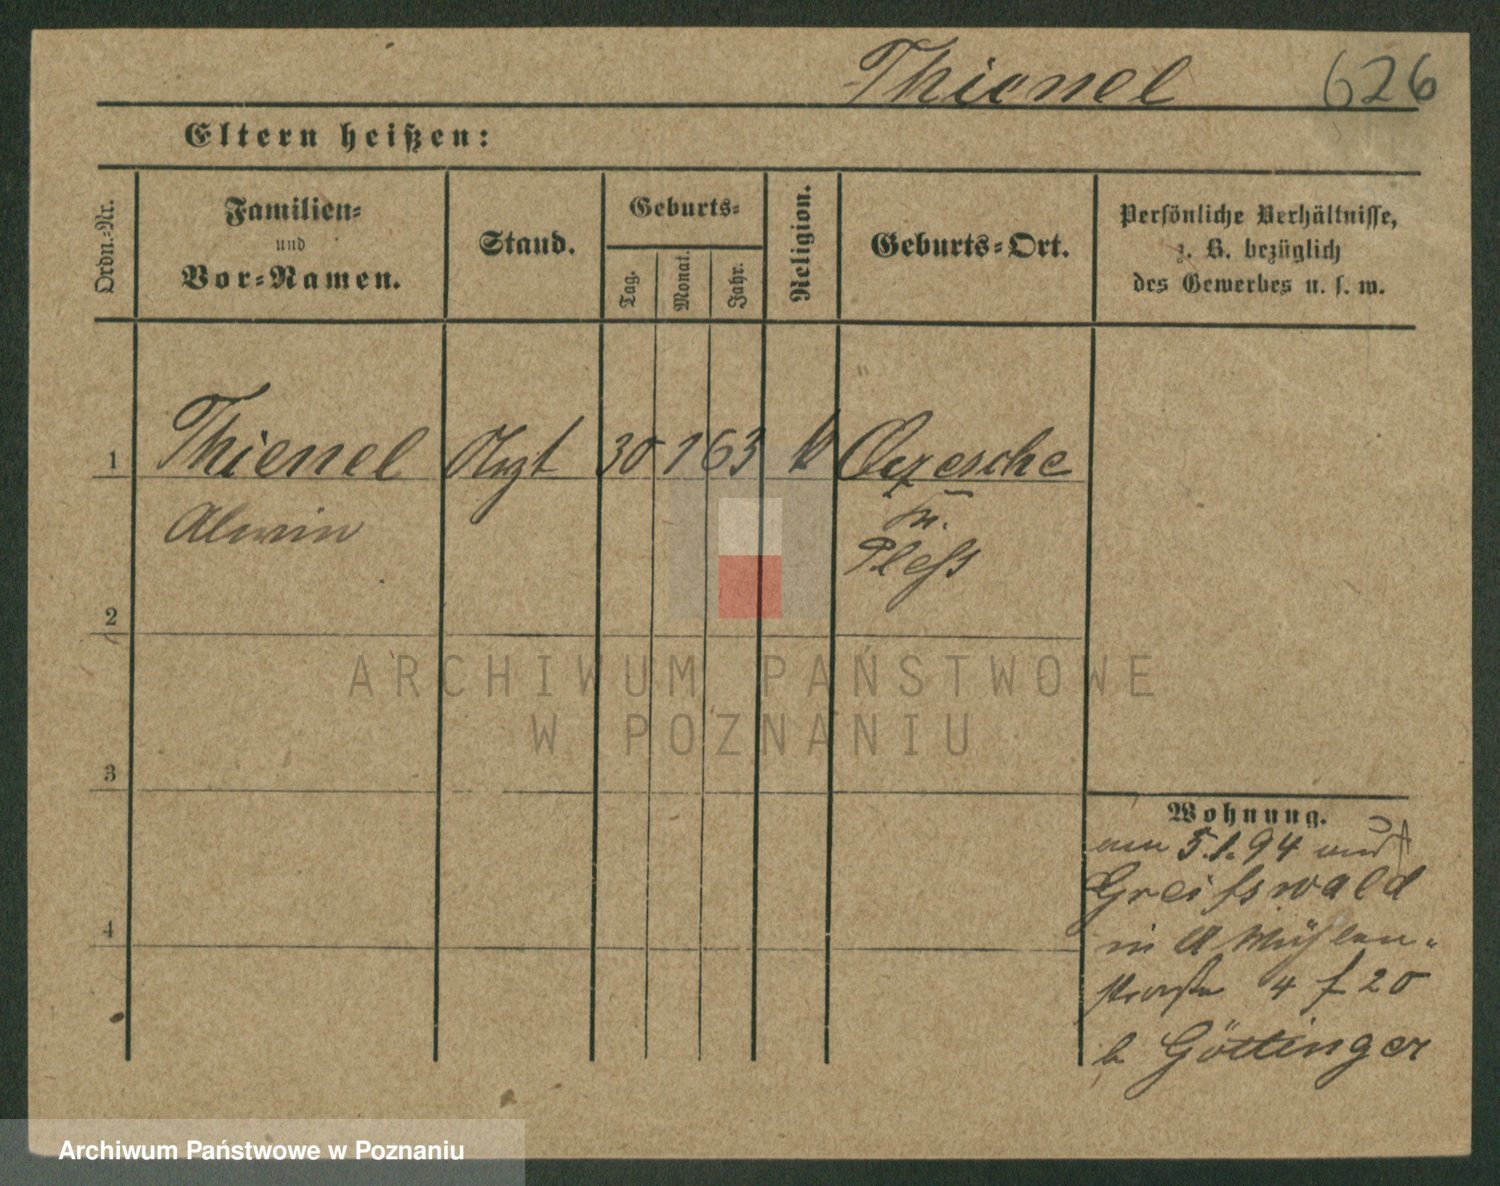 Thienel 626
Eltern heißen:
Ordn.-Nr.
Familien-
und
Vor-Namen.
Stand.
Geburts-
Tag.
Monat.
Jahr.
Religion.
Geburts-Ort.
Persönliche Verhältnisse,
z. B. bezüglich
des Gewerbes u. s. w.
1 Thienel Arzt 30 1 63 k Orzesche
Alwin Kr.
Pless
2
3
4
Wohnung.
am 5.1.94 aus
Greifswald
in A Mühlen-
straße 4 f 20
b Göttinger
ARCHIWUM PAŃSTWOWE
W POZNANIU
Archiwum Państwowe w Poznaniu